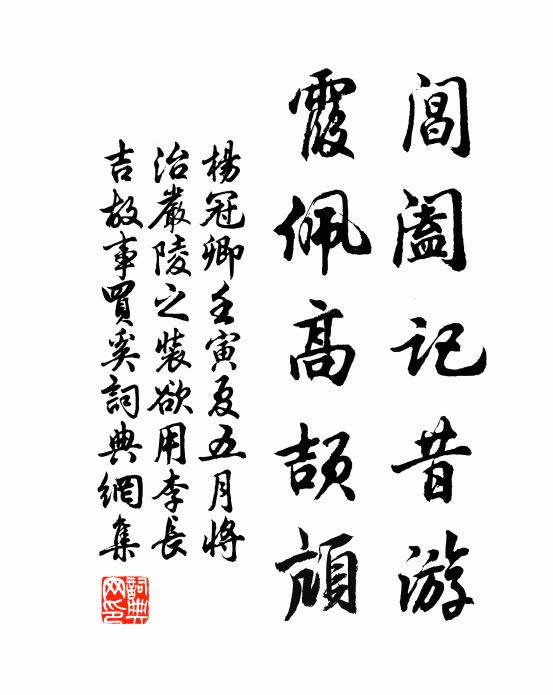 閶闔記昔游
霞佩高頡頏
楊冠卿壬寅夏五月將
治嚴陵之裝欲用李長
吉故事買奚詞典網集
詞典
网印